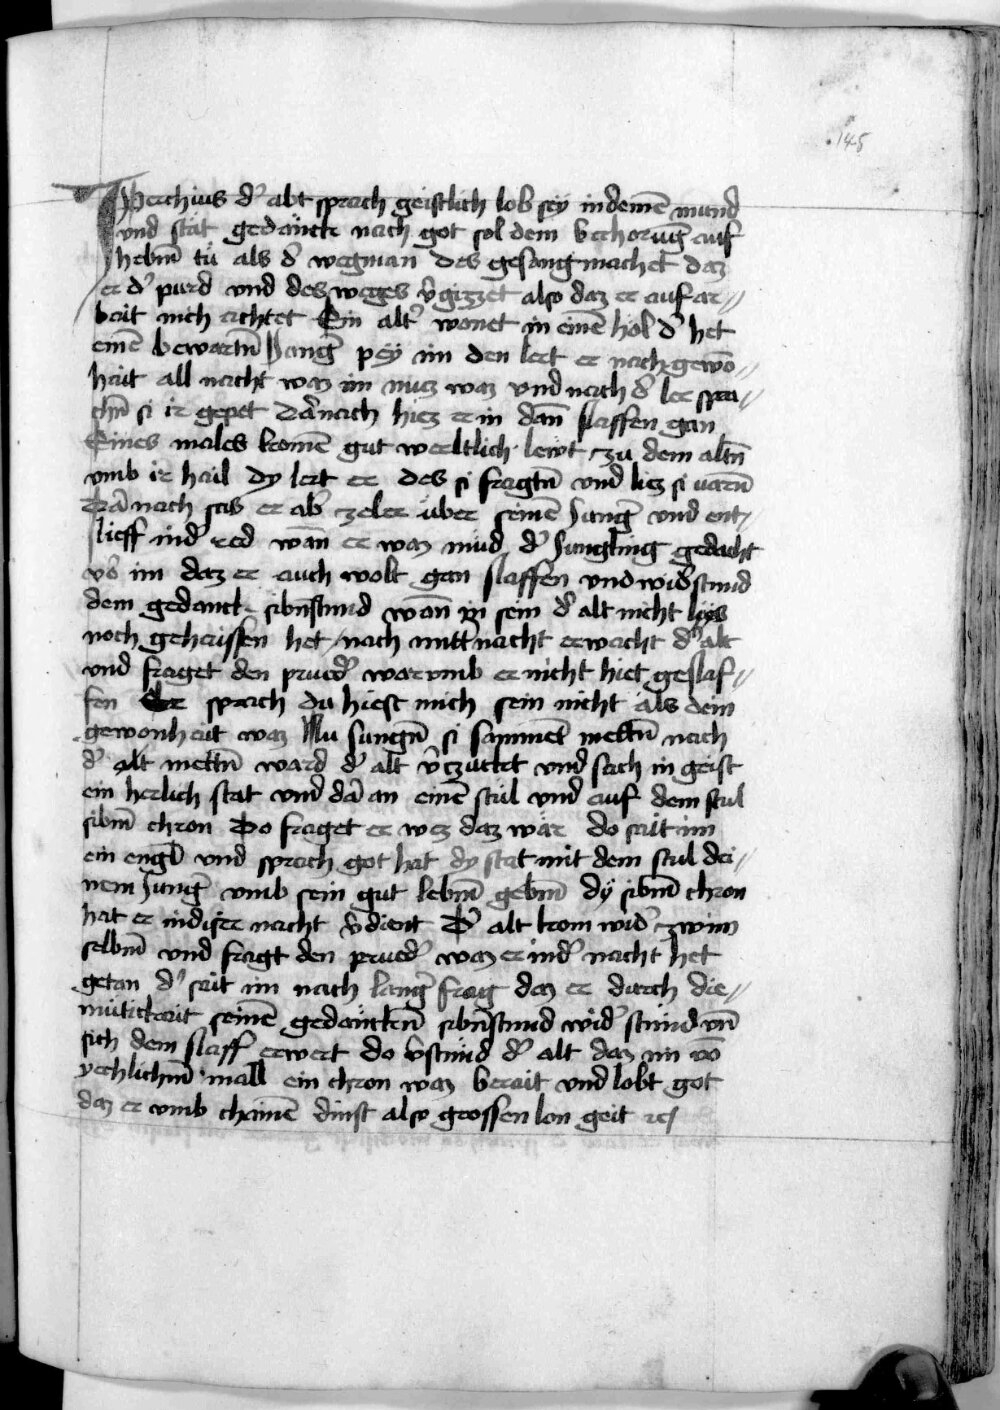 145
Yperchius d' abt sprach geistlich lob sey in deinē mund
vnd stät gedänck nach got sol dein bechorūg auf
hebn̄ tü als d' wegman des gesang machet daz
er d' purd vnd des weges v̄gizzet also daz er auf ar//
beit nich achtet Ein alt' wonet in einē hol d' het
einē bewartn̄ Jūng' pey im den lert er nach gewō//
hait all nacht waz im nucz waz vnd nach d' ler spra//
chn̄ si ir gepet Dar nach hiez er in dān slaffen gan
Eines males komē gut werltlich lewt zu dem altn̄
vmb ir hail dy lert er des si fragtn̄ vnd liez si varn̄
Darnach sas er ab' zeler über seinē Jung' vnd ent//
slieff in d' red wān er waz müd d' Jungling gedacht
vō im daz er auch wolt gan slaffen vnd wid'stund
dem gedanck sibn̄stund wān in sein d' alt nicht lies
noch gehaissen het nach mitt'nacht erwacht d' alt
vnd fraget den prued' warumb er nicht hiet geslaf//
fen Er sprach du hiest mich sein nicht als dein
gewonhait waz Nu sungn̄ si sammēt mettn̄ nach
d' alt mettn̄ ward d' alt v̄czucket vnd sach in geist
ein herlich stat vnd dar an einē stul vnd auf dem stul
sibn̄ chron Do fraget er wez daz wär do sait im
ein engl vnd sprach got hat dy stat mit dem stul dei//
nem Jung' vmb sein gut lebn̄ gebn̄ dy sibn̄ chron
hat er in diser nacht v̄dient D' alt kom wid' zwim
selbn̄ vnd fragt den prued' waz er in d' nacht het
getan d' sait im nach lang' frag daz er durch die//
mütickait seinē gedäncken̄ sibn̄stund wid' stund vn̄
sich dem slaff erwert do v̄stund d' alt daz im vō
yechlichm̄ mall ein chron waz berait vnd lobt got
daz er vmb chainē dinst also grossen lon geit rc